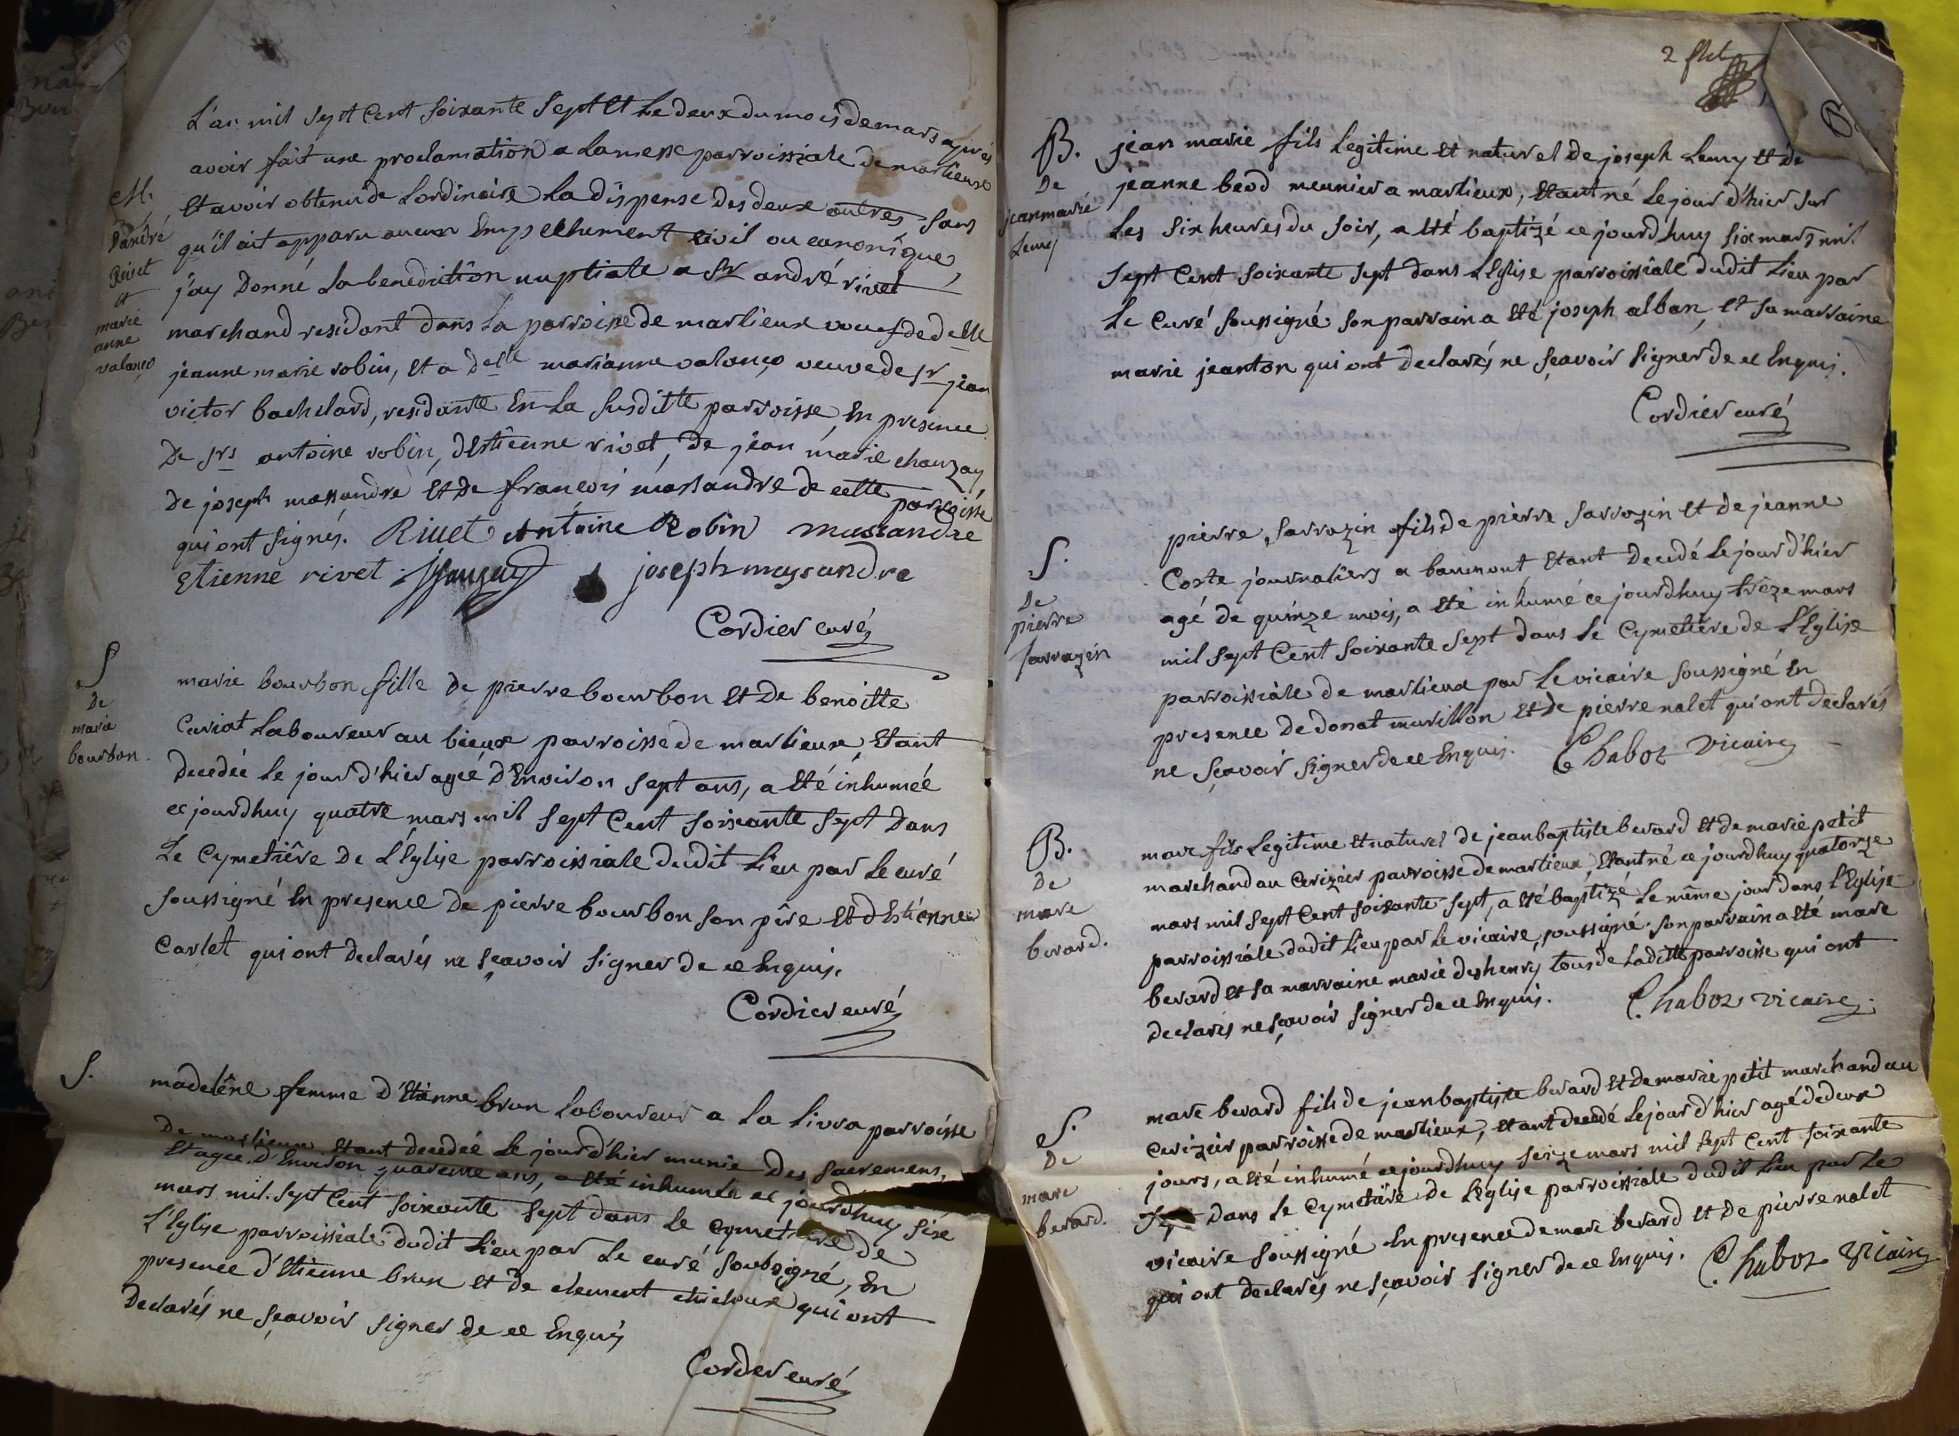 L'an mil sept cent soixante sept et le deux du mois de mars apres
avoir fait une proclamation a la messe parroissiale de marlieux
et avoir obtenu de l'ordinaire la dispense des deux autres, sans
qu'il ait apparu aucun empechement civil ou canonique,
j'ay donné la benediction nuptiale a sr andré rivet
marchand residant dans la parroisse de marlieux veuf de delle
jeanne marie robin, et a delle marianne valanço veuve de sr jean
victor bachelard, residante en la susditte parroisse, en presence
de srs antoine robin, d'estienne rivet, de jean marie chauzay
de joseph massandre et de françois massandre de cette parroisse
qui ont signés. Rivet Antoine Robin massandre
etienne rivet joseph massandre
Cordier curé
M.
D'andré
Rivet
et
marie
anne
valanço
S
De
marie
bourbon.
marie bourbon fille de pierre bourbon et de benoitte
curiat laboureur au bieux parroisse de marlieux, etant
decedée le jour d'hier agée d'environ sept ans, a eté inhumée
ce jourdhuy quatre mars mil sept cent soixante sept dans
le cymetière de l'église parroissiale dudit lieu par le curé
soussigné en presence de pierre bourbon son père et d'estienne
carlet qui ont declarés ne sçavoir signer de ce enquis.
Cordier curé
S.
madelène femme d'etienne brun laboureur a la livra parroisse
de marlieux etant decedée le jour d'hier munie des sacremens,
et agée d'environ quarente ans, a eté inhumée ce jourdhuy sixe
mars mil sept cent soixante sept dans le cymetière de
l'eglise parroissiale dudit lieu par le curé soubsigné, en
presence d'etienne brun et de clement chichoux qui ont
declarés ne sçavoir signer de ce enquis
Cordier curé
2 flet
B.
De
jean marie
Lemy
jean marie fils legitime et naturel de joseph Lemy et de
jeanne beod meunier a marlieux, etant né le jour d'hier sur
les six heures du soir, a été baptizé ce jourd'huy six mars mil
sept cent soixante sept dans l'eglise parroissiale dudit lieu par
le curé soussigné son parrain a été joseph alban, et sa marraine
marie jeanton qui ont declarés ne sçavoir signer de ce enquis.
Cordier curé
S.
De
pierre
sarrazin
pierre sarrozin fils de pierre sarrozin et de jeanne
Coste journaliers a baumont etant decedé le jour d'hier
agé de quinze mois, a eté inhumé ce jourdhuy treze mars
mil sept cent soixante sept dans le cymetière de l'Eglise
parroissiale de marlieux par le vicaire soussigné en
presence de donat murillon et de pierre nalet qui ont declarés
ne sçavoir signer de ce enquis. Chaboz vicaire
B.
De
marc
berard.
marc fils legitime et naturel de jean baptiste berard et de marie petit
marchand au cerizier parroisse de marlieux, etant né ce jourdhuy quatorze
mars mil sept cent soixante sept, a été baptizé le même jour dans l'Eglise
parroissiale dudit lieu par le vicaire soussigné. son parrain a eté marc
berard et sa marraine marie deshenry tous de laditte parroisse qui ont
declarés ne sçavoir signer de ce enquis. Chaboz vicaire.
S.
De
marc
berard.
marc berard fils de jean baptiste berard et de marie petit marchand au
cerizier parroisse de marlieux, etant decedé le jour d'hier agé de deux
jours, a été inhumé ce jourdhuy seize mars mil sept cent soixante
sept dans le cymetière de l'église parroissiale dudit lieu par le
vicaire soussigné en presence de marc berard et de pierre nalet
qui ont declarés ne sçavoir signer de ce enquis. Chaboz vicaire